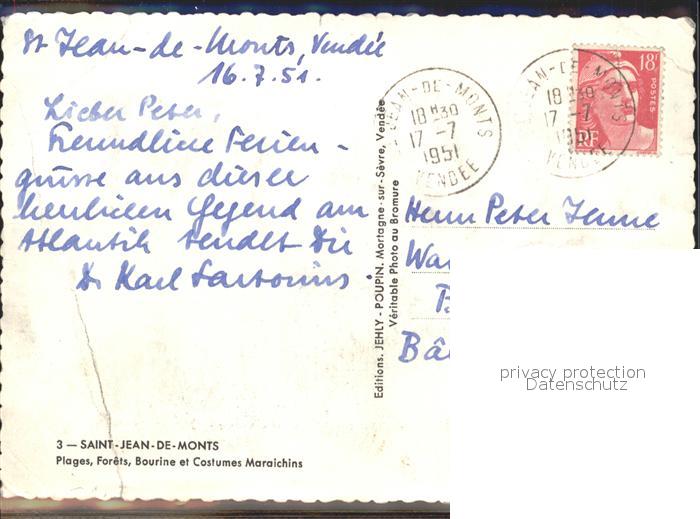 St Jean-de-Monts, Vendée
16.7.51.
Lieber Peter,
Freundliche Ferien-
grüsse aus dieser
herrlichen Gegend am
Atlantik sendet Dir
Dr Karl
Herrn Peter Jenne
Wa
B
Bâ
ST JEAN-DE-MONTS
18H30
17-7
1951
VENDÉE
JEAN-DE-MONTS
18H30
17-7
1951
VENDÉE
18F
POSTES
RF
Editions. JEHLY-POUPIN. Mortagne-sur-Sèvre, Vendée
Véritable Photo au Bromure
privacy protection
Datenschutz
3 — SAINT-JEAN-DE-MONTS
Plages, Forêts, Bourine et Costumes Maraichins